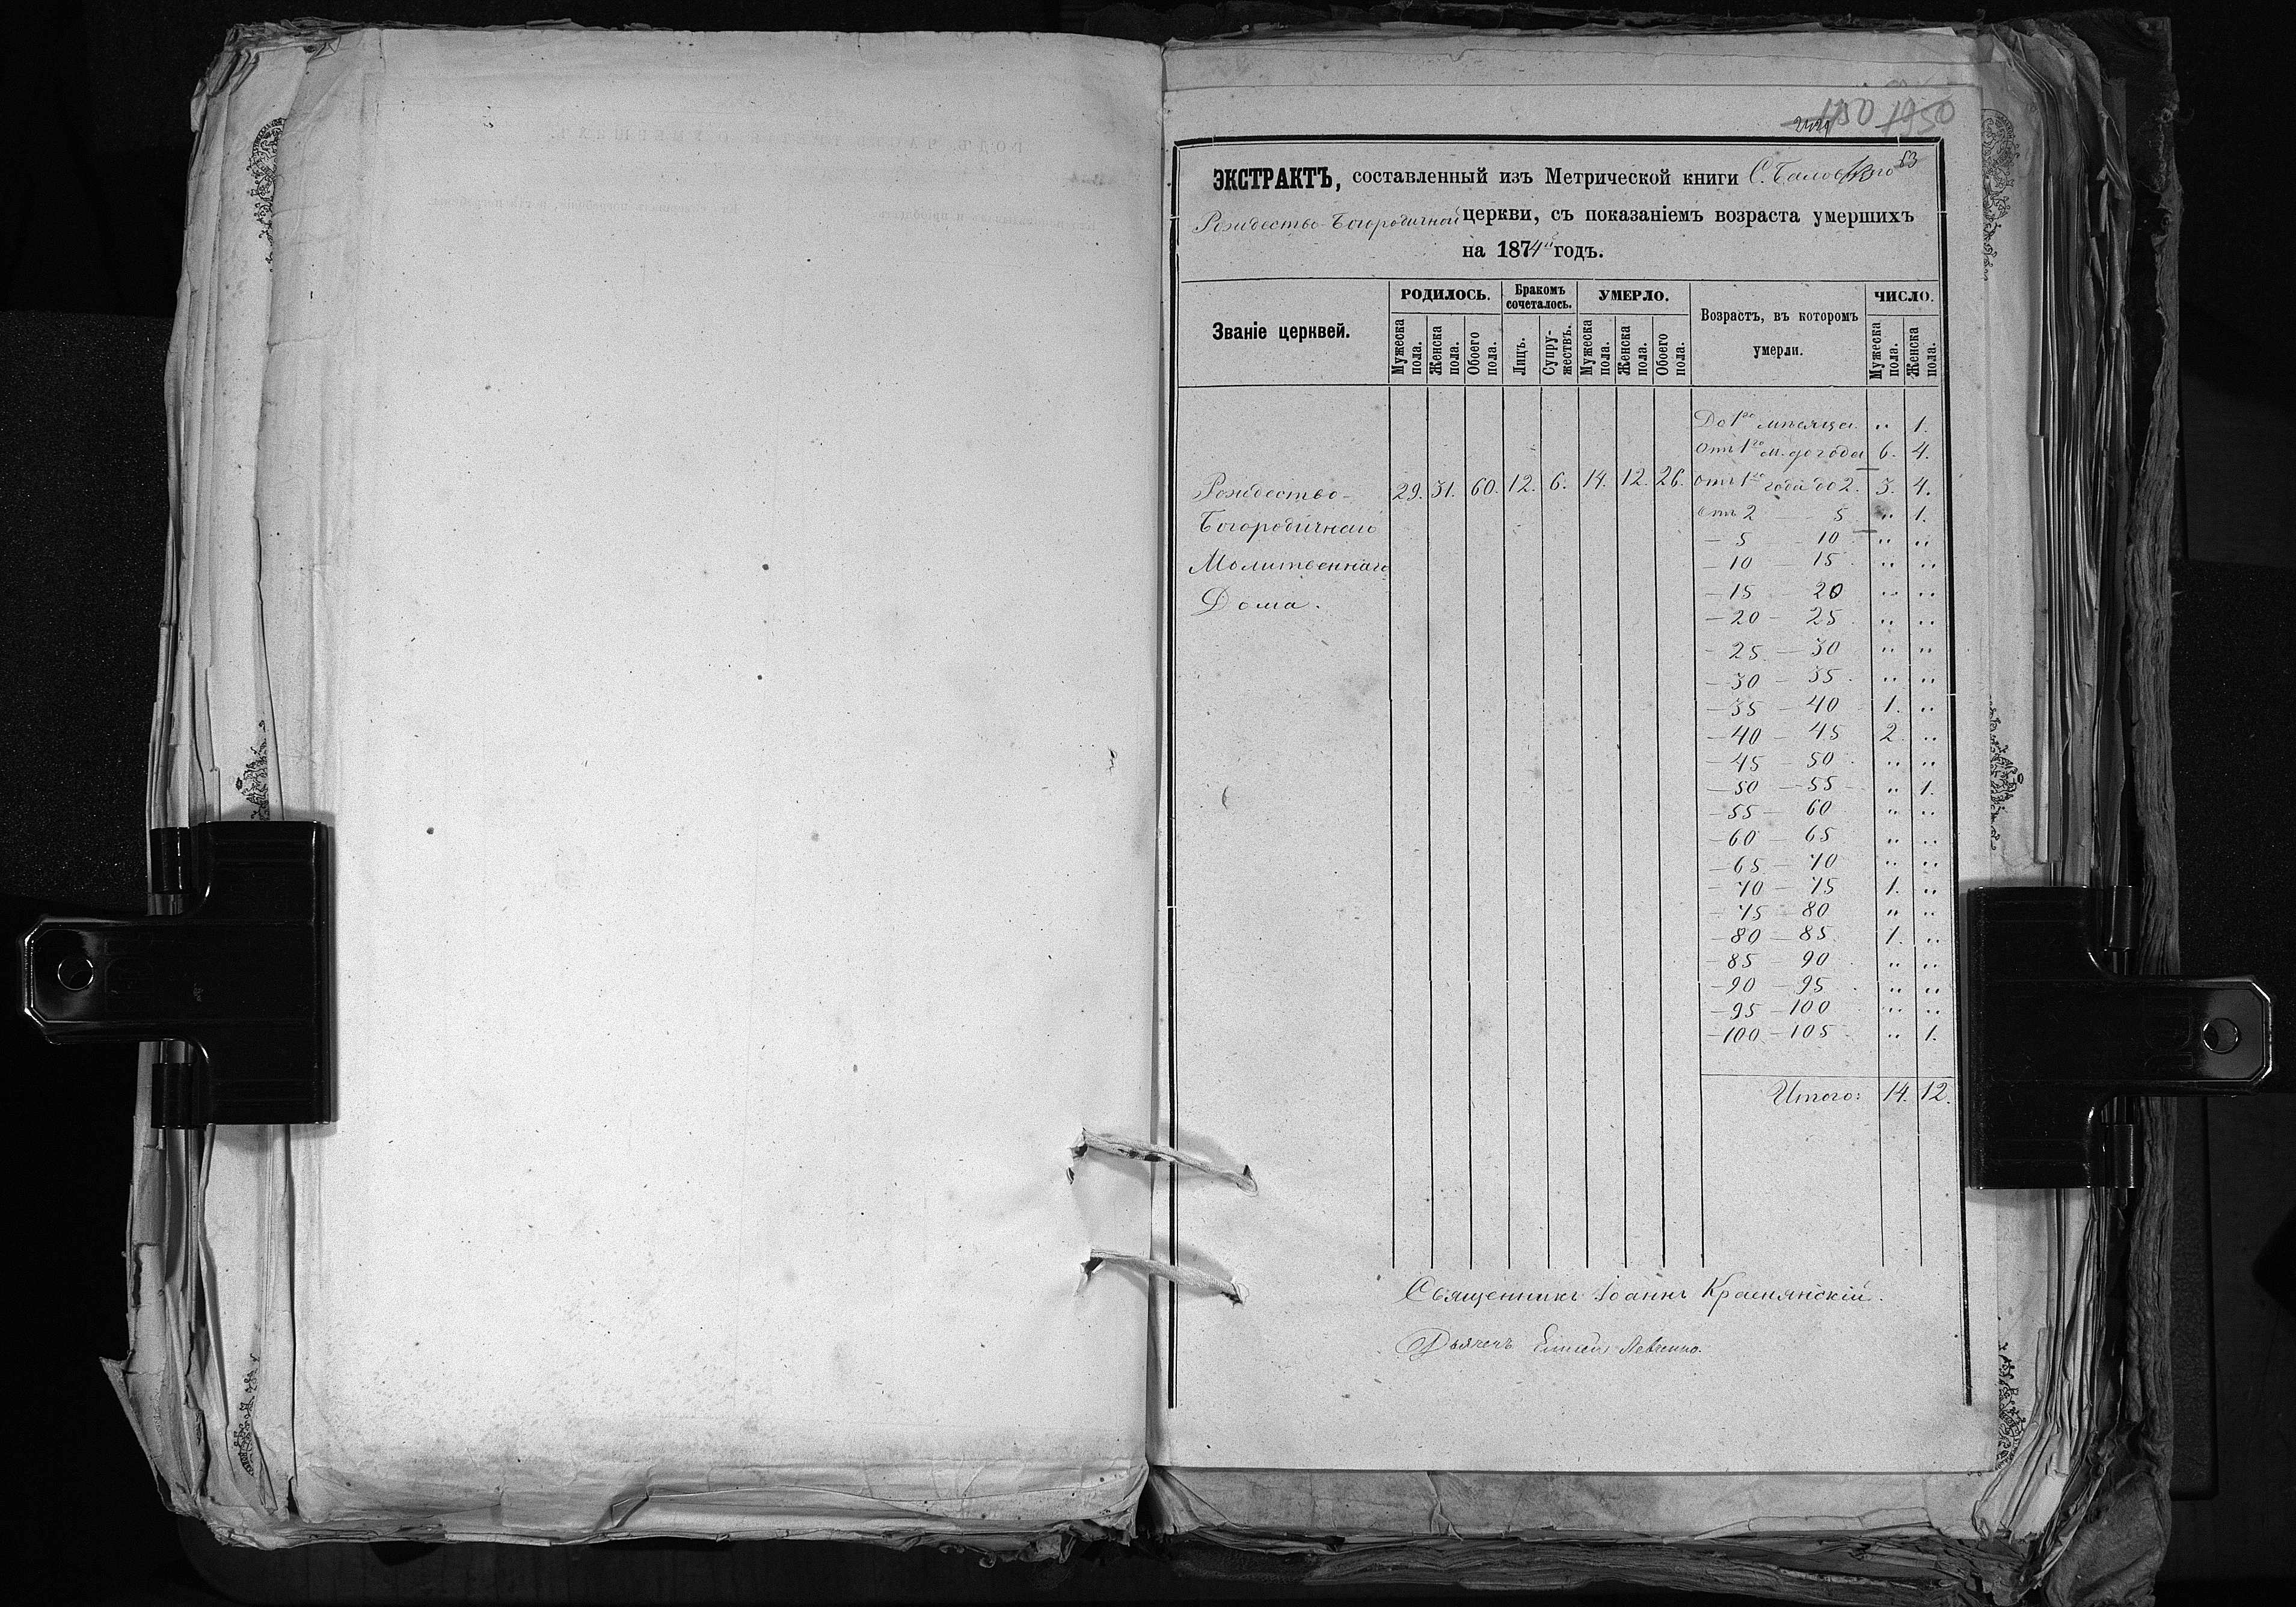 1750 1950
63
ЭКСТРАКТЪ, составленный изъ Метрической книги С.
Рождество-Богородичной церкви, съ показаніемъ возраста умершихъ
на 1874й годъ.
Званіе церквей. РОДИЛОСЬ. Бракомъ сочеталось. УМЕРЛО. Возрастъ, въ которомъ умерли. ЧИСЛО.
Мужеска пола. Женска пола. Обоего пола. Лицъ. Супружествъ. Мужеска пола. Женска пола. Обоего пола. Мужеска пола. Женска пола.
До 1го мѣсяца „ 1.
Отъ 1го м. до года 6. 4.
Рождество- 29. 31. 60. 12. 6. 14. 12. 26. Отъ 1го года до 2. 3. 4.
Богородичнаго Отъ 2 — 5 „ 1.
— 5 — 10 „ „
Молитвеннаго — 10 — 15 „ „
Дома. — 15 — 20 „ „
— 20 — 25 „ „
— 25 — 30 „ „
— 30 — 35 „ „
— 35 — 40 1. „
— 40 — 45 2. „
— 45 — 50 „ „
— 50 — 55 „ 1.
— 55 — 60 „ „
— 60 — 65 „ „
— 65 — 70 „ „
— 70 — 75 1. „
— 75 — 80 „ „
— 80 — 85 1. „
— 85 — 90 „ „
— 90 — 95 „ „
— 95 — 100 „ „
— 100 — 105 „ 1.
Итого: 14. 12.
Священникъ Іоаннъ Краснянскій.
Дьячекъ Елисей Левченко.